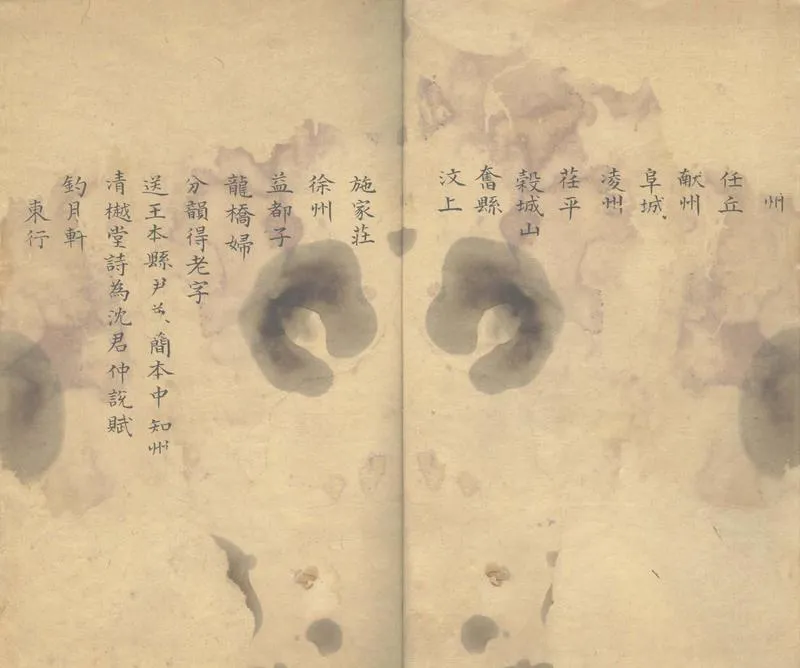 州
任丘
献州
阜城
凌州
茌平
穀城山
奮縣
汶上
施家莊
徐州
益都子
龍橋婦
分韻得老字
送王本縣尹 蕳本中知州
清樾堂詩為沈君仲説賦
釣月軒
東行